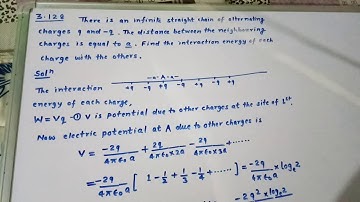 3.128 There is an infinite straight chain of alternating
charges q and -q. The distance between the neighbouring
charges is equal to a. Find the interaction energy of each
charge with the others.
Solⁿ
-a- A -a-
The interaction +q -q +q -q +q -q +q
energy of each charge,
W = Vq -① V is potential due to other charges at the site of 1st.
Now electric potential at A due to other charges is
V = -2q/4πϵ₀a + 2q/4πϵ₀×2a - 2q/4πϵ₀×3a + ......
= -2q/4πϵ₀a [ 1 - 1/2 + 1/3 - 1/4 + ...... ] = -2q/4πϵ₀a × logₑ2
-2q² × log 2